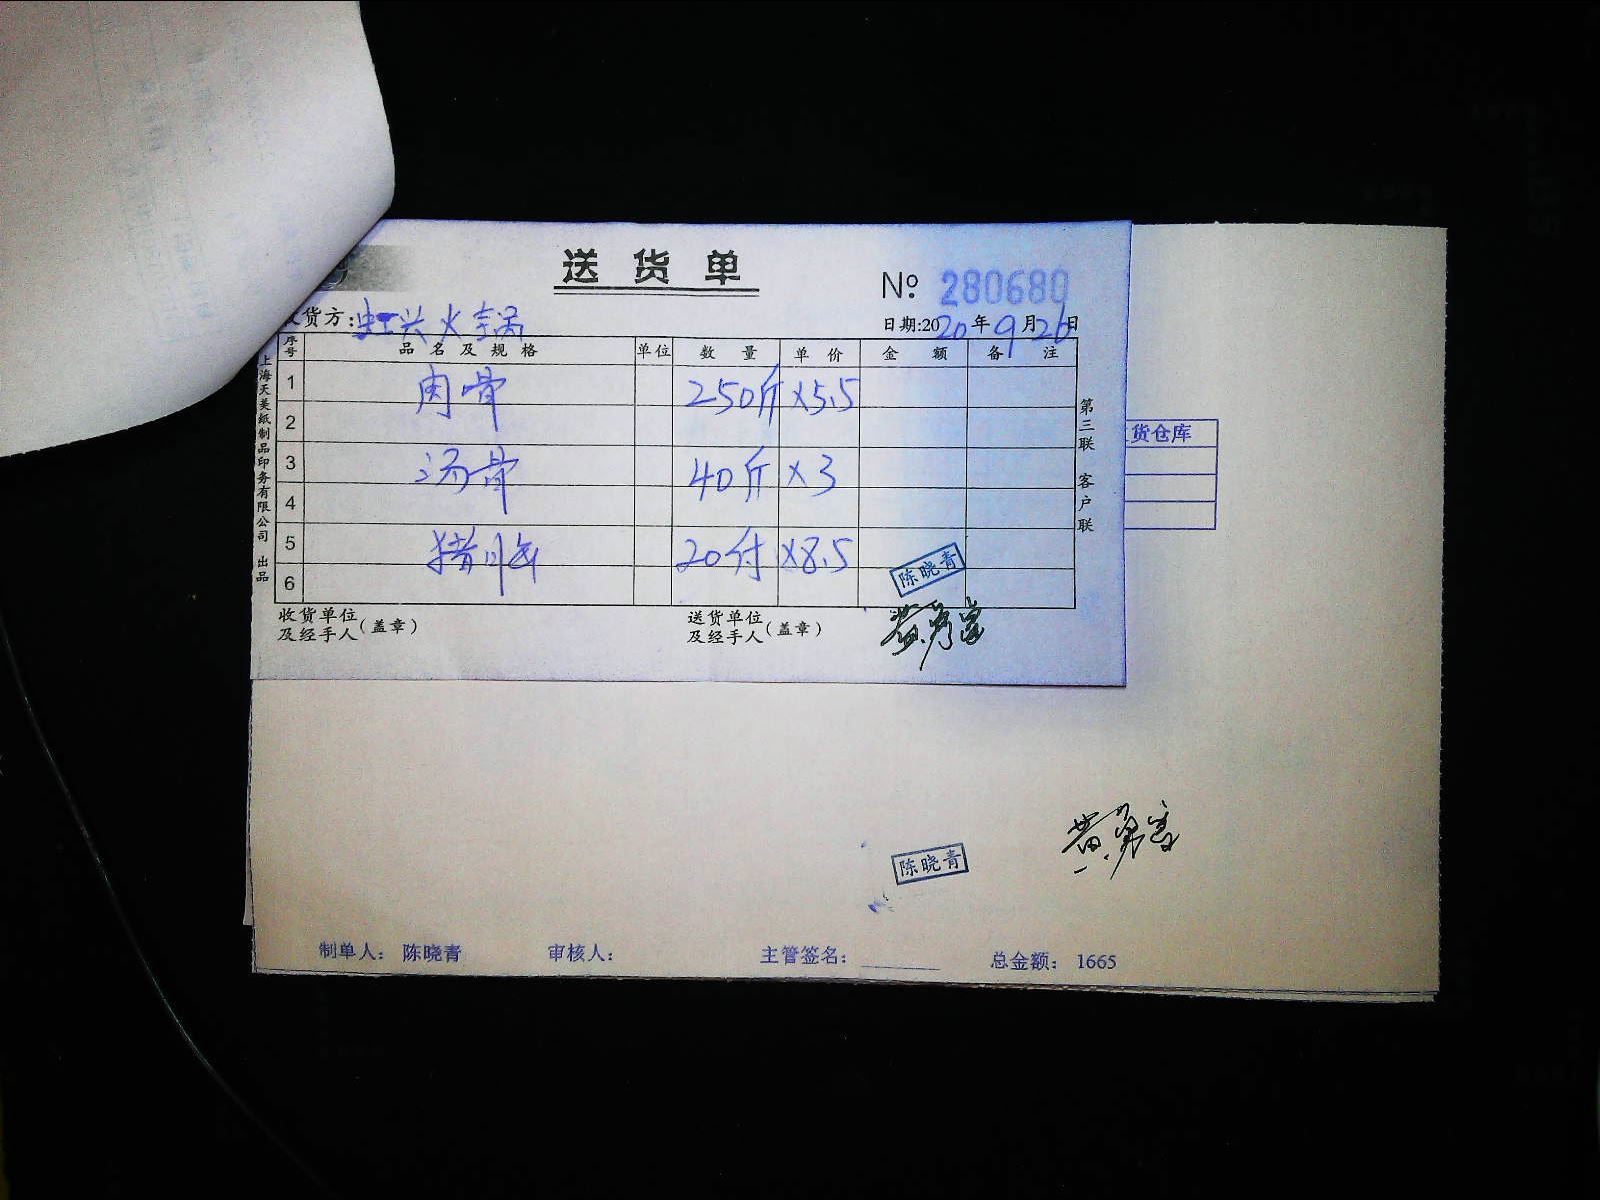 送货单
№ 280680
货方:虹兴火锅 日期:2020年9月26日
序号 品名及规格 单位 数量 单价 金额 备注
1 肉骨 250斤 ×5.5
2
3 汤骨 40斤 ×3
4
5 猪 20付 ×8.5
6
陈晓青
收货单位及经手人(盖章) 送货单位及经手人(盖章)
上海天美纸制品印务有限公司 出品
第三联 客户联
货仓库
陈晓青
制单人: 陈晓青 审核人: 主管签名: 总金额: 1665